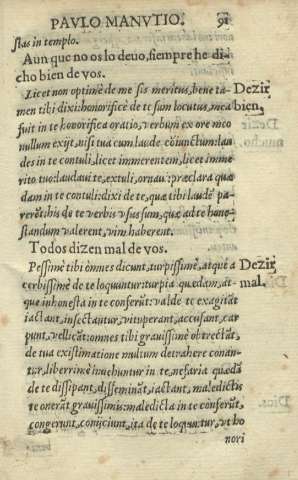 PAVLO MANVTIO. 91
stas in templo.
Aun que no os lo deuo, siempre he di-
cho bien de vos.
Licet non optimè de me sis meritus, bene ta- Dezir
men tibi dixi: honorificè de te sum locutus, mea bien.
fuit in te honorifica oratio, verbum ex ore meo
nullum exijt, nisi tua cum laude cōiunctum: lau
des in te contuli, licet immerentem, licet imme-
rito tuo: laudaui te, extuli, ornaui: præclara quæ
dam in te contuli: dixi de te, quæ tibi laudē pa-
rerēt: ijs de te verbis vsus sum, quæ ad te hone-
standum valerent, vim haberent.
Todos dizen mal de vos.
Pessimè tibi omnes dicunt, turpissimè, atque a Dezir
cerbissimè de te loquuntur: turpia quædam, at- mal.
que inhonesta in te conferūt: valde te exagitāt
iactant, insectantur, vituperant, accusant, car
punt, vellicāt: omnes tibi grauissimè obtrectāt,
de tua existimatione multum detrahere conan-
tur, liberrimè inuehuntur in te, nefaria quædā
de te dissipant, disseminūt, iactant, maledictis
te onerāt grauissimis: maledicta in te conferūt,
congerunt, conijciunt, ita de te loquntur, vt ho
nori